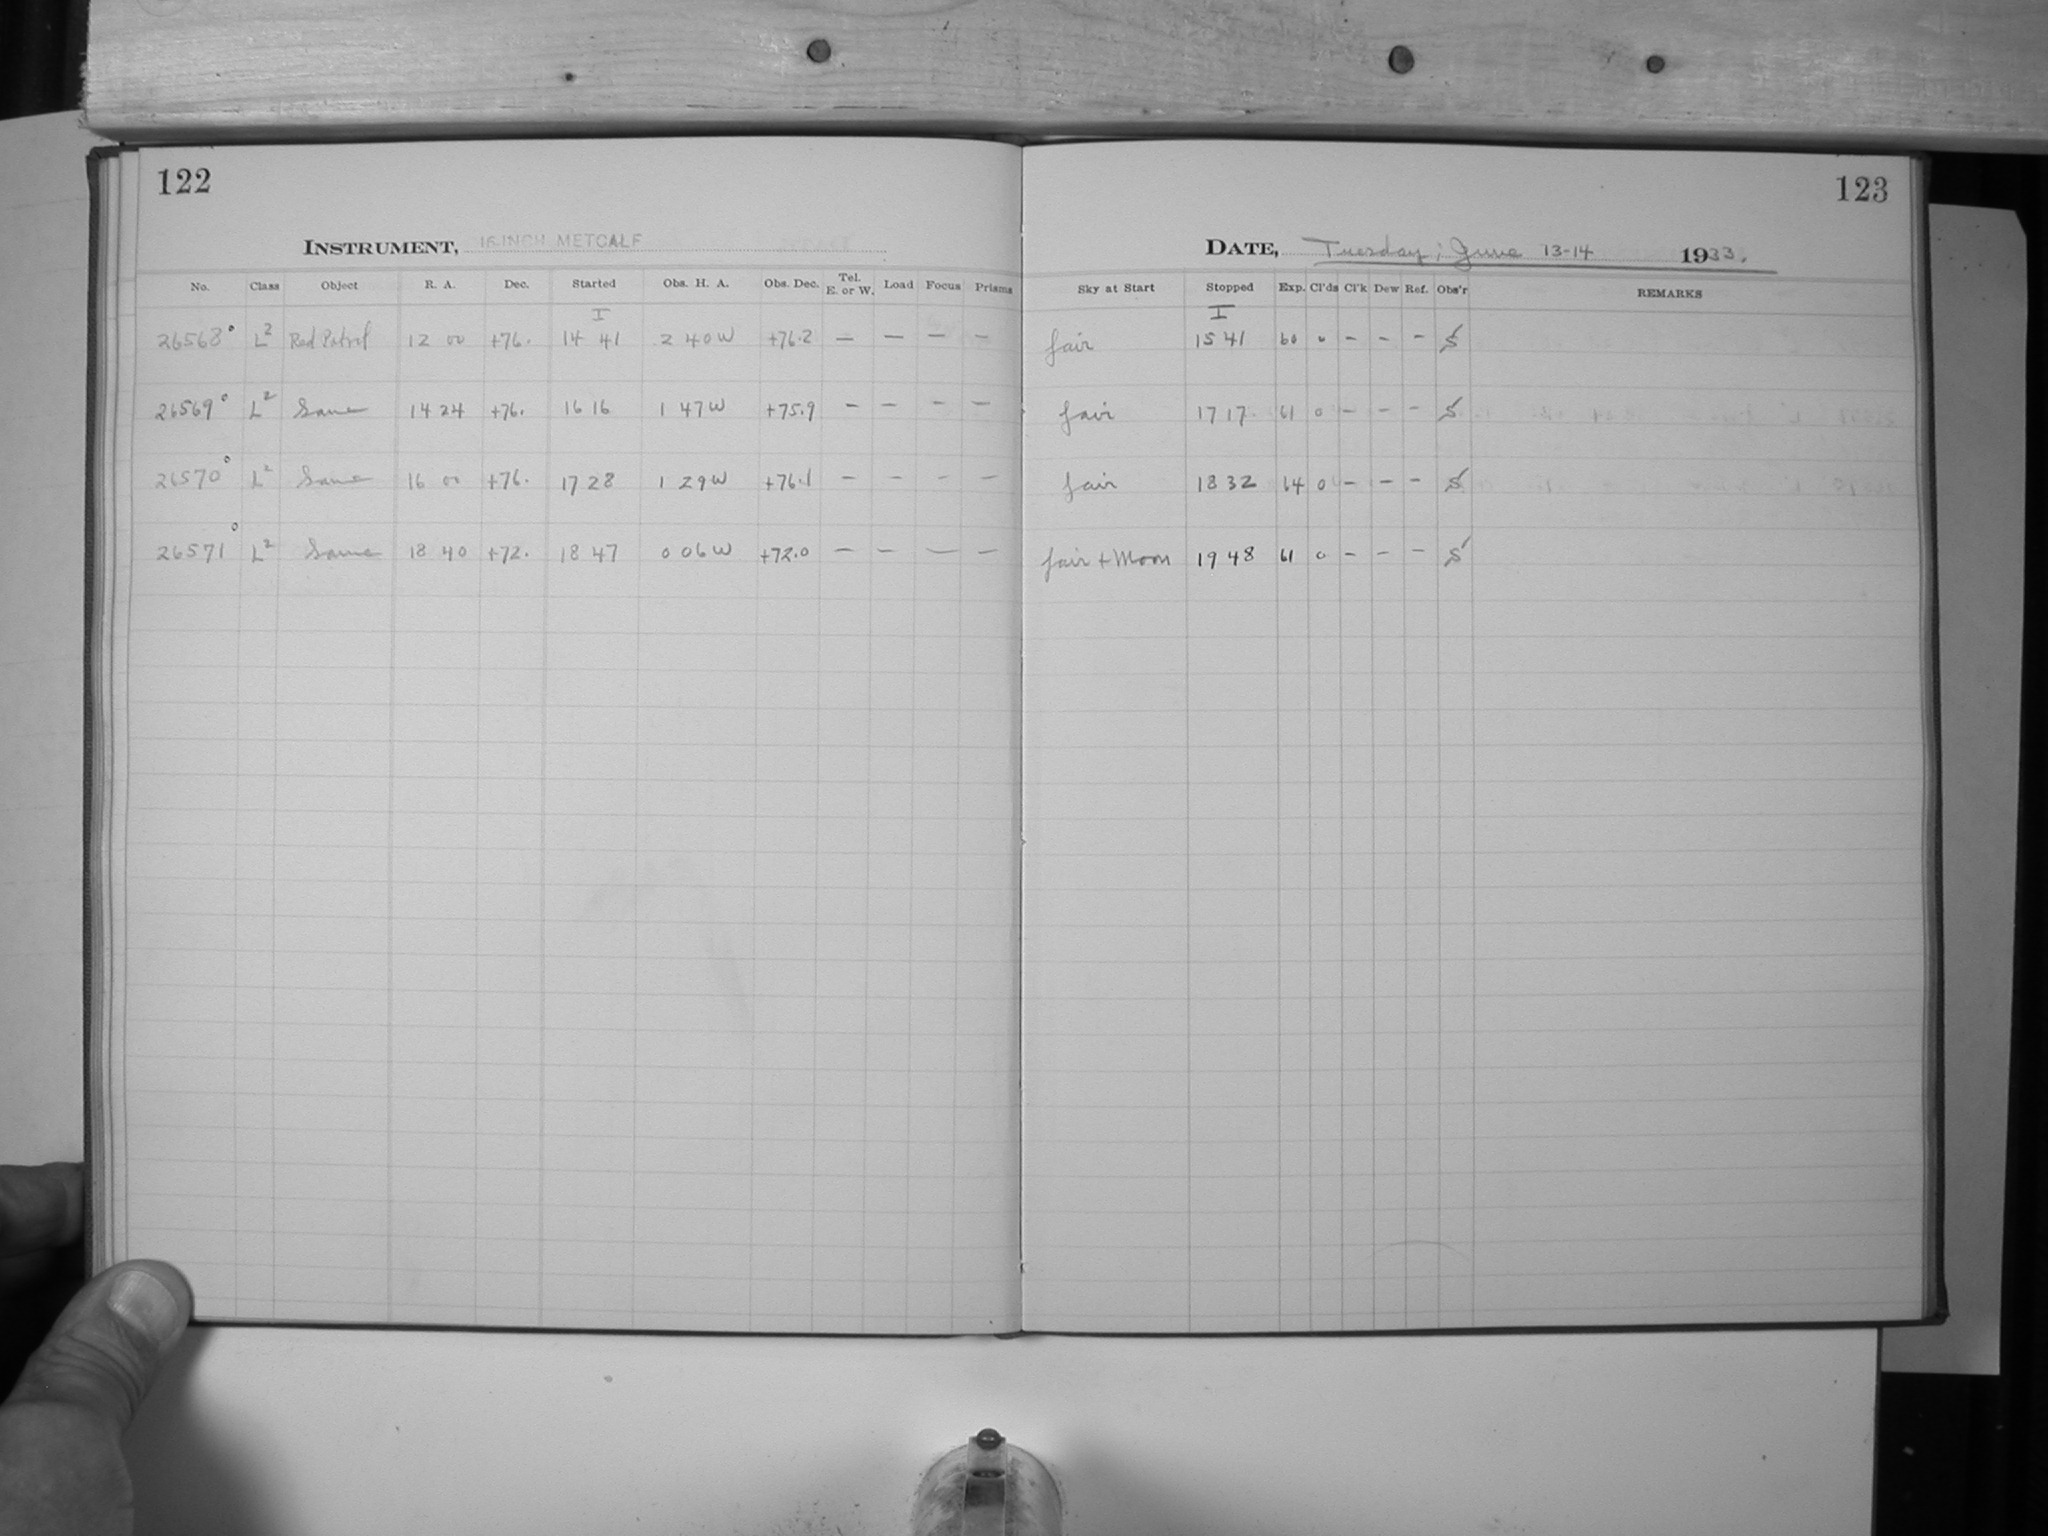 122
123
INSTRUMENT, 16-INCH METCALF
DATE, Tuesday; June 13-14 1933.
No. Class Object R. A. Dec. Started Obs. H. A. Obs. Dec. Tel. E. or W. Load Focus Prisms Sky at Start Stopped Exp. Cl'ds Cl'k Dew Ref. Obs'r REMARKS
I I
26568° L² Red Patrol 12 00 +76. 14 41 2 40 W +76.2 — — — — fair 15 41 60 0 – – – S
26569° L² Same 14 24 +76. 16 16 1 47 W +75.9 — — — — fair 17 17 61 0 – – – S
26570° L² Same 16 00 +76. 17 28 1 29 W +76.1 — — — — fair 18 32 64 0 – – – S
26571° L² Same 18 40 +72. 18 47 0 06 W +72.0 — — — — fair + Moon 19 48 61 0 – – – S